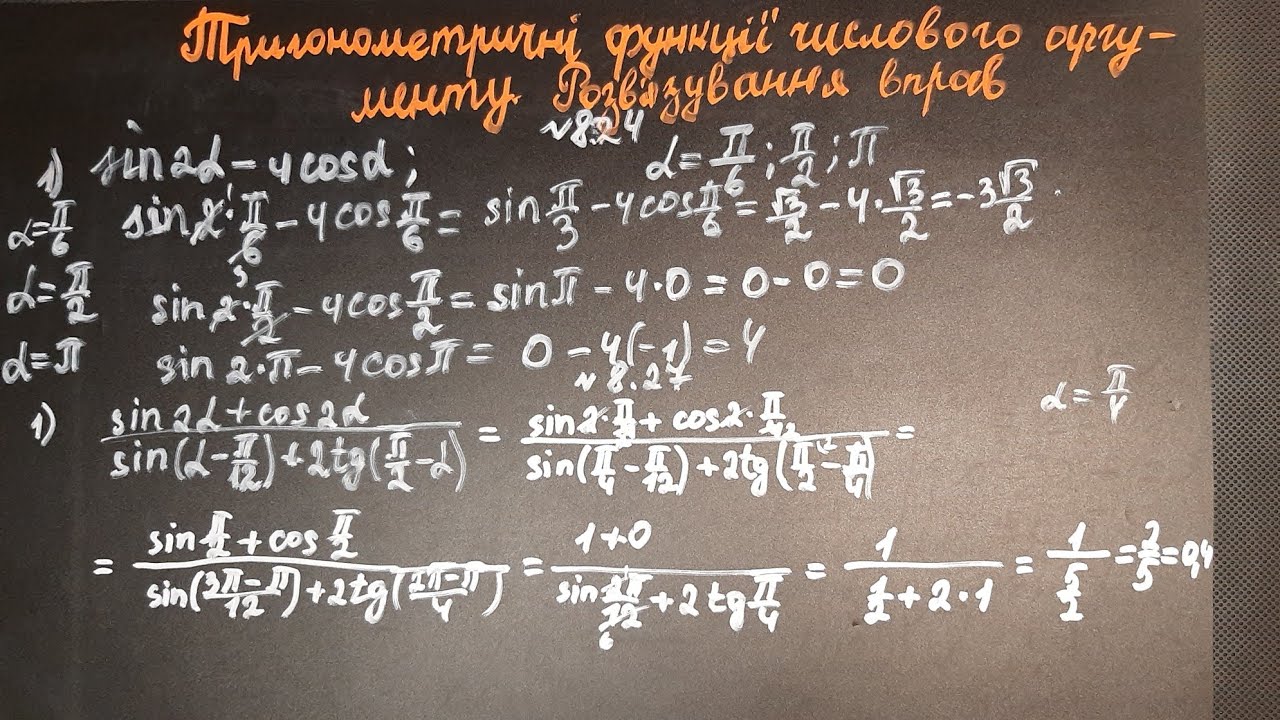 Тригонометричні функції числового аргу-
менту. Розв'язування вправ
№8.24
1) sin2α - 4cosα; α = π/6; π/2; π
α = π/6 sin2·π/6 - 4cosπ/6 = sinπ/3 - 4cosπ/6 = √3/2 - 4·√3/2 = -3√3/2.
α = π/2 sin2·π/2 - 4cosπ/2 = sinπ - 4·0 = 0 - 0 = 0
α = π sin2·π - 4cosπ = 0 - 4(-1) = 4
№8.27
1) (sin2α + cos2α)/(sin(α - π/12) + 2tg(π/2 - α)) = (sin2·π/4 + cos2·π/4)/(sin(π/4 - π/12) + 2tg(π/2 - π/4)) = α = π/4
= (sinπ/2 + cosπ/2)/(sin((3π-π)/12) + 2tg((2π-π)/4)) = (1+0)/(sin2π/12 + 2tgπ/4) = 1/(1/2 + 2·1) = 1/(5/2) = 2/5 = 0,4